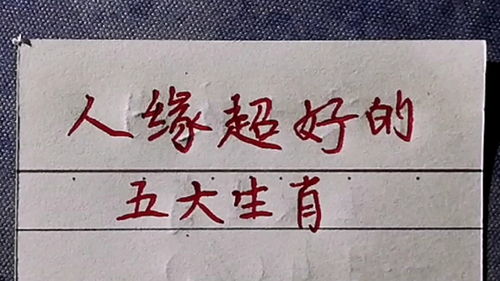 人缘超好的
五大生肖